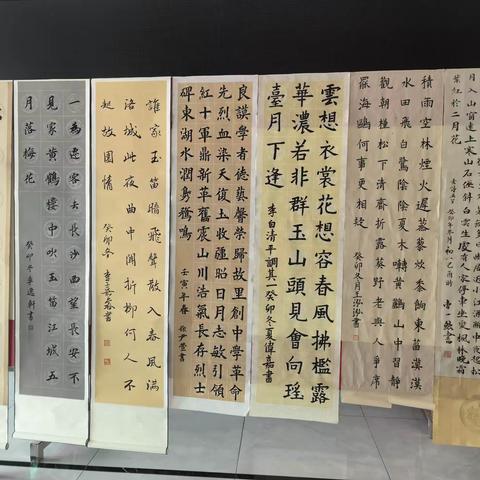 月入山窗遠上寒山石徑斜白雲生處有人家停車坐愛楓林晚霜
葉紅於二月花
積雨空林煙火遲蒸藜炊黍餉東菑漠漠
水田飛白鷺陰陰夏木囀黃鸝山中習靜
觀朝槿松下清齋折露葵野老與人爭席
罷海鷗何事更相疑 癸卯冬月王泓書
雲想衣裳花想容春風拂檻露
華濃若非群玉山頭見會向瑤
臺月下逢 李白清平調其一癸卯冬夏偉嘉書
良謨學者德藝馨榮歸故里創中學革命
先烈血染天復玉收疆昭日月志敏引領
紅十軍鼎新革舊震山川浩氣長存烈士
碑東湖水潤芻鶩鳴 壬寅年春 徐尹萱書
誰家玉笛暗飛聲散入春風滿
洛城此夜曲中聞折柳何人不
起故園情 癸卯冬 書
一為遷客去長沙西望長安不
見家黃鶴樓中吹玉笛江城五
月落梅花 癸卯冬 軒書